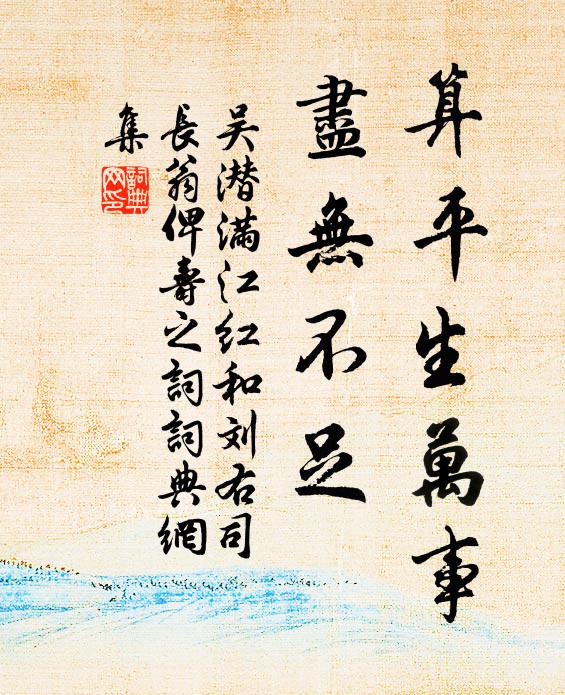 算平生萬事
盡無不足
吴潜满江红和刘右司
長翁俾壽之詞詞典網
集
詞典
网印